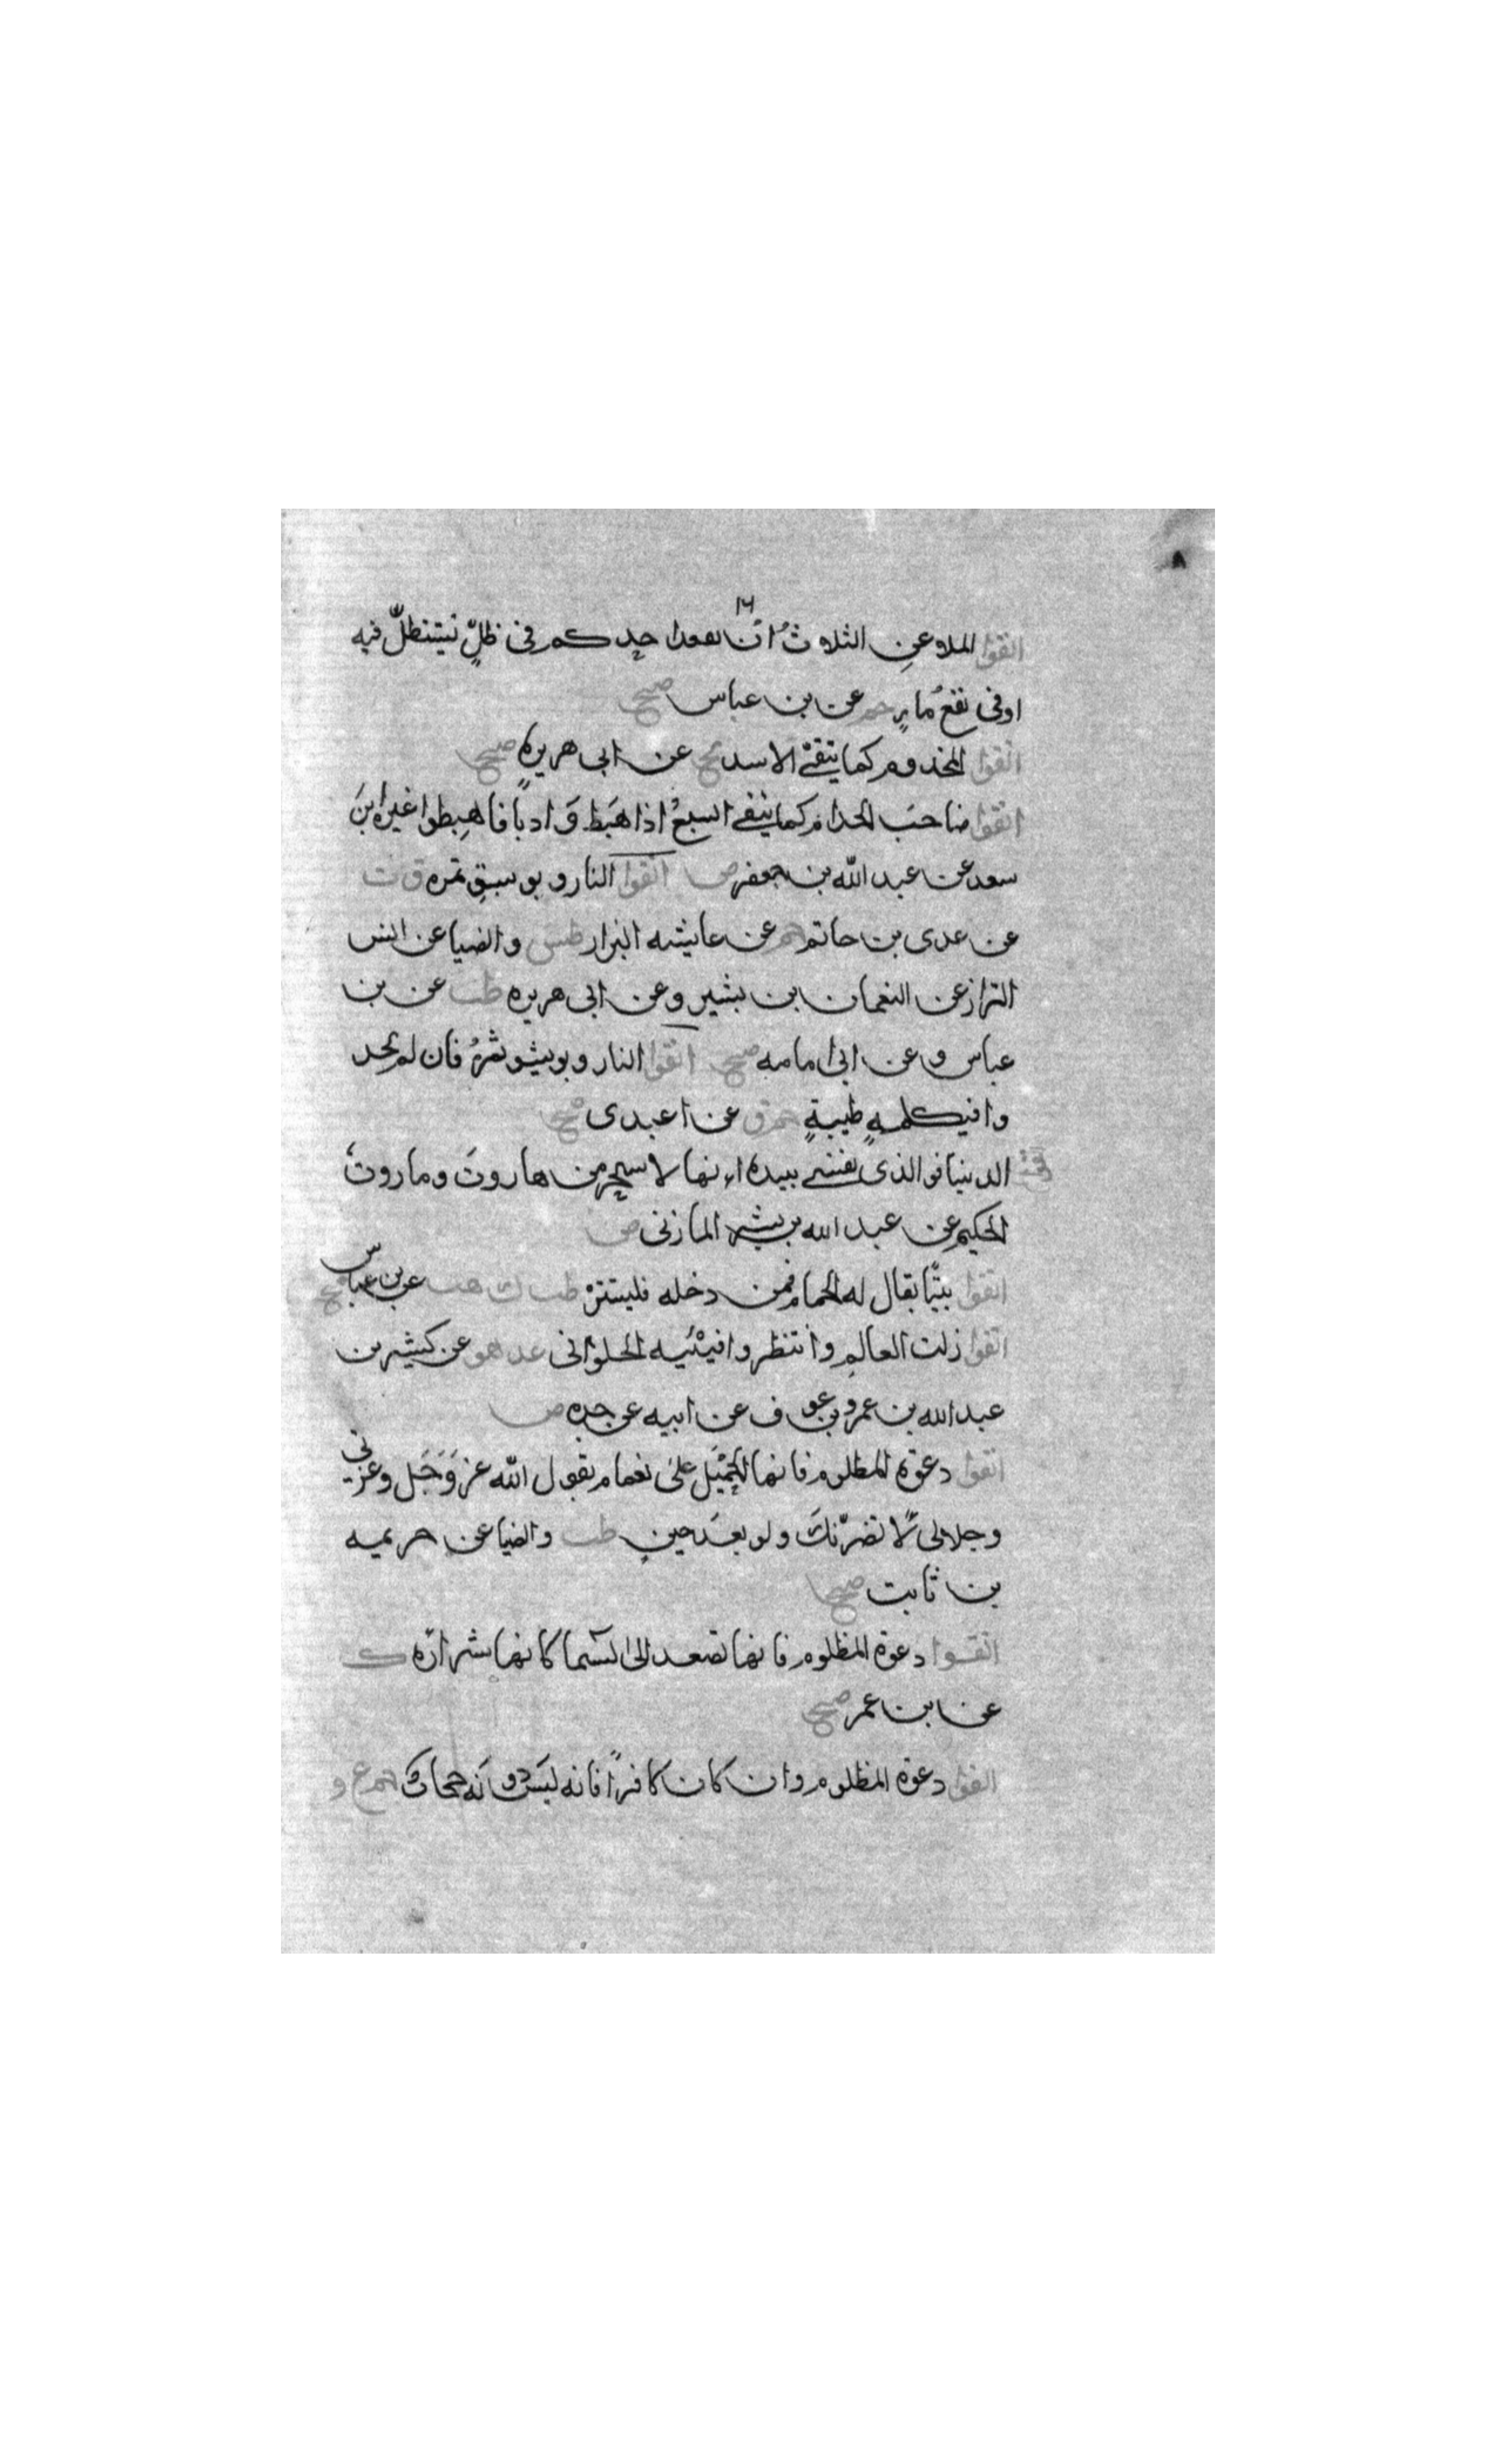 ٨
١٦
اتقوا الملاعن الثلاث ان يقعد احدكم في ظلٍّ يستظلّ فيه
او في نقع ماءٍ حم عن بن عباس صح
اتقوا المجذوم كما يتقى الاسد تخ عن ابى هريره صح
اتقوا صاحب الجذام كما يتقى السبعُ اذا هَبَط وَادياً فاهبطوا غيره ابن
سعد عن عبد الله بن جعفر ض اتقوا النار وبو سبق تمره ق ن
عن عدى بن حاتم حم عن عايشه البزار طس والضيا عن انس
البزار عن النعمان بن بشير وعن ابى هريره طب عن بن
عباس وعن ابى امامه صح اتقوا النار وبو بشو تمره فان لم تجد
وا فبكلمهٍ طيبةٍ حم ق عن اعبدى صح
اتقوا الدنيا فو الذى نفسى بيده انها لاسحر من هاروتَ وماروتَ
الحكيم عن عبد الله بن بشر المازنى ض
اتقوا بيتًا يقال له الحمام فمن دخله فليستترْ طب ك هب عن بن عباس صح
اتقوا زلت العالم وانتظروا فيئيه الحلوانى عد هق عن كثير بن
عبد الله بن عمرو بن عوف عن ابيه عن جده ض
اتقوا دعوة المظلوم فانها تحمل على الغمام يقول الله عز وَجَل وعزتى
وجلالى لا نصرّنك ولو بعدَ حينٍ طب والضيا عن خزيمه
بن ثابت صح
اتقوا دعوة المظلوم فانها تصعد الى السما كانها شراره ك
عن ابن عمر صح
اتقوا دعوة المظلوم وان كان كافرًا فانه ليس دونه حجاب حم ع و